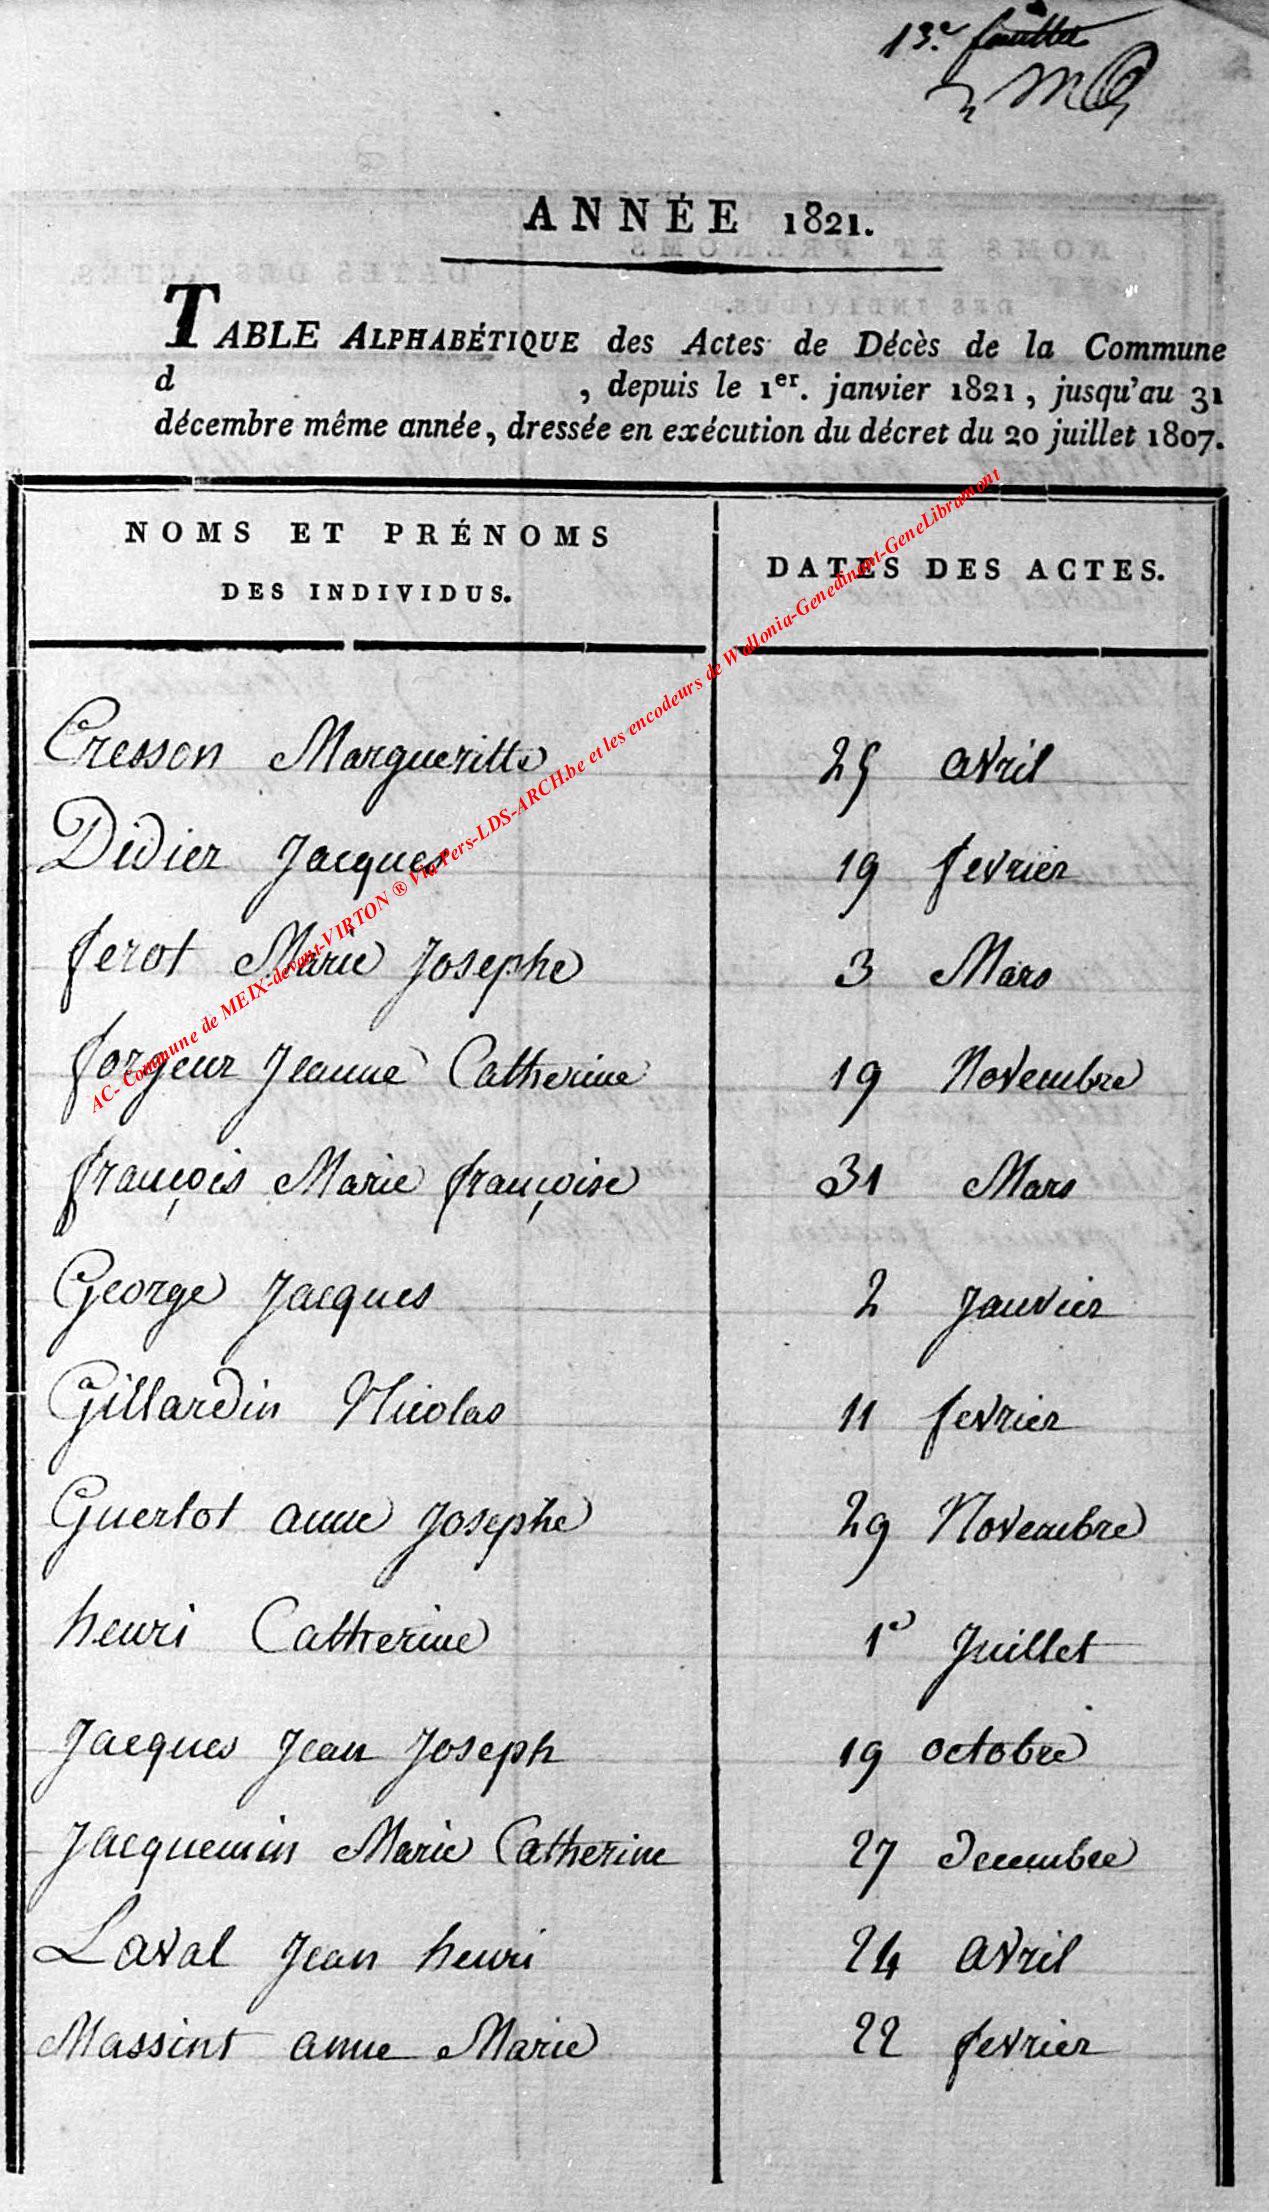 13.e feuillet
ANNÉE 1821.
TABLE ALPHABÉTIQUE des Actes de Décès de la Commune
d , depuis le 1er. janvier 1821, jusqu'au 31
décembre même année, dressée en exécution du décret du 20 juillet 1807.
NOMS ET PRÉNOMS
DES INDIVIDUS.
DATES DES ACTES.
AC- Commune de MEIX-devant-VIRTON ® Via Pers-LDS-ARCH.be et les encodeurs de Wallonia-Genedinant-GeneLibramont
Cresson Margueritte 25 avril
Didier Jacques 19 fevrier
ferot Marie Josephe 3 Mars
forgeur Jeanne Catherine 19 Novembre
françois Marie françoise 31 Mars
George Jacques 2 Janvier
Gillardin Nicolas 11 fevrier
Guerlot anne Josephe 29 Novembre
henri Catherine 1e Juillet
Jacques Jean Joseph 19 octobre
Jacquemin Marie Catherine 27 Decembre
Laval Jean henri 24 avril
Massint anne Marie 22 fevrier